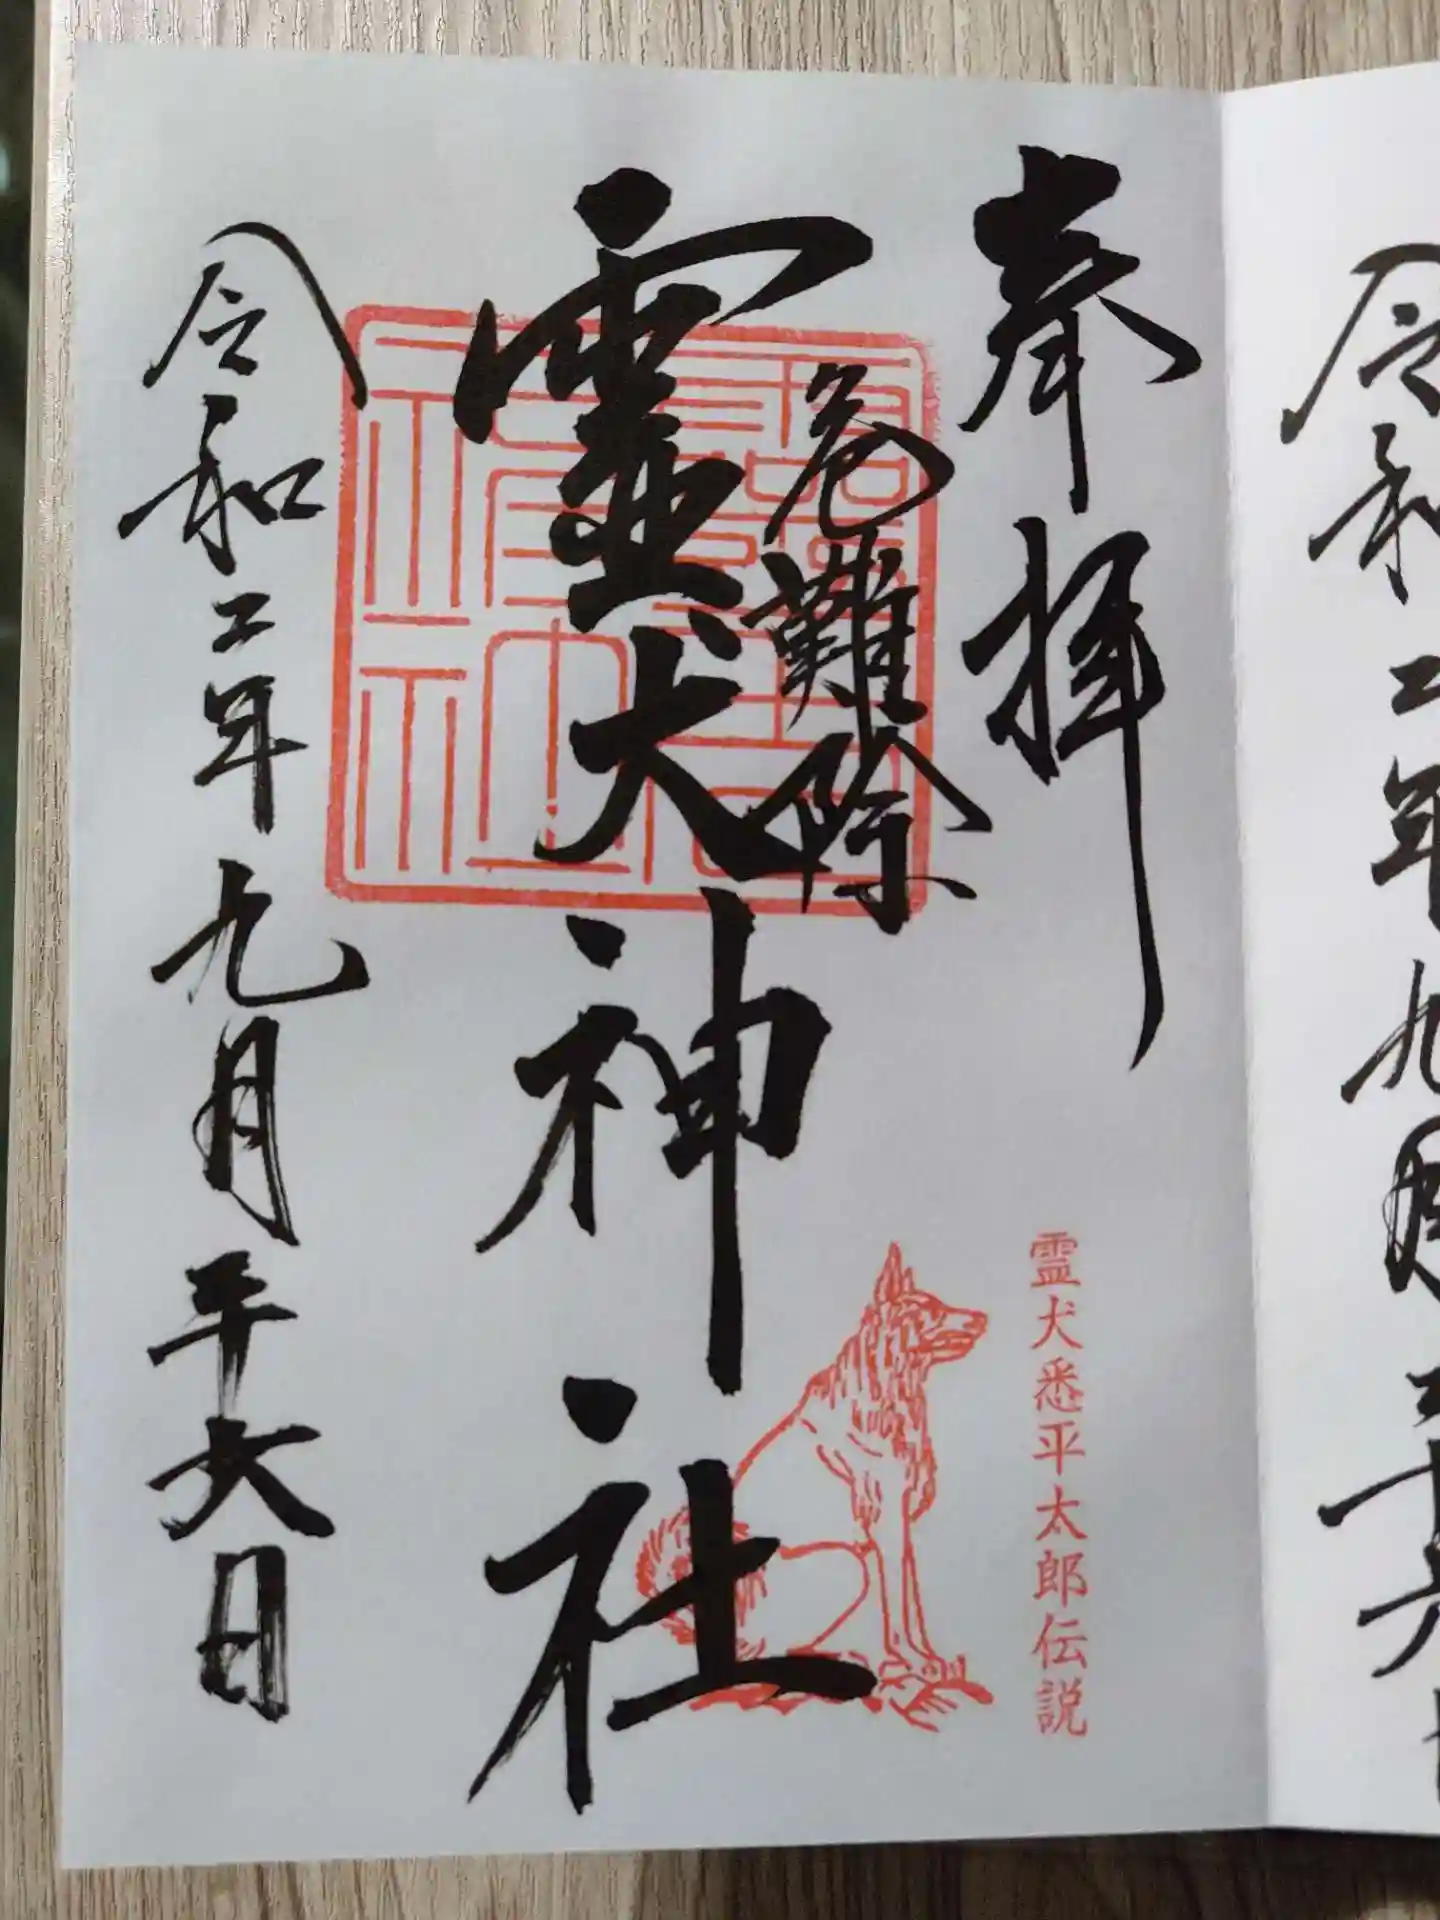 奉拝
危難除
霊犬神社
霊犬悉平太郎伝説
令和二年九月二十六日
令和二年九月